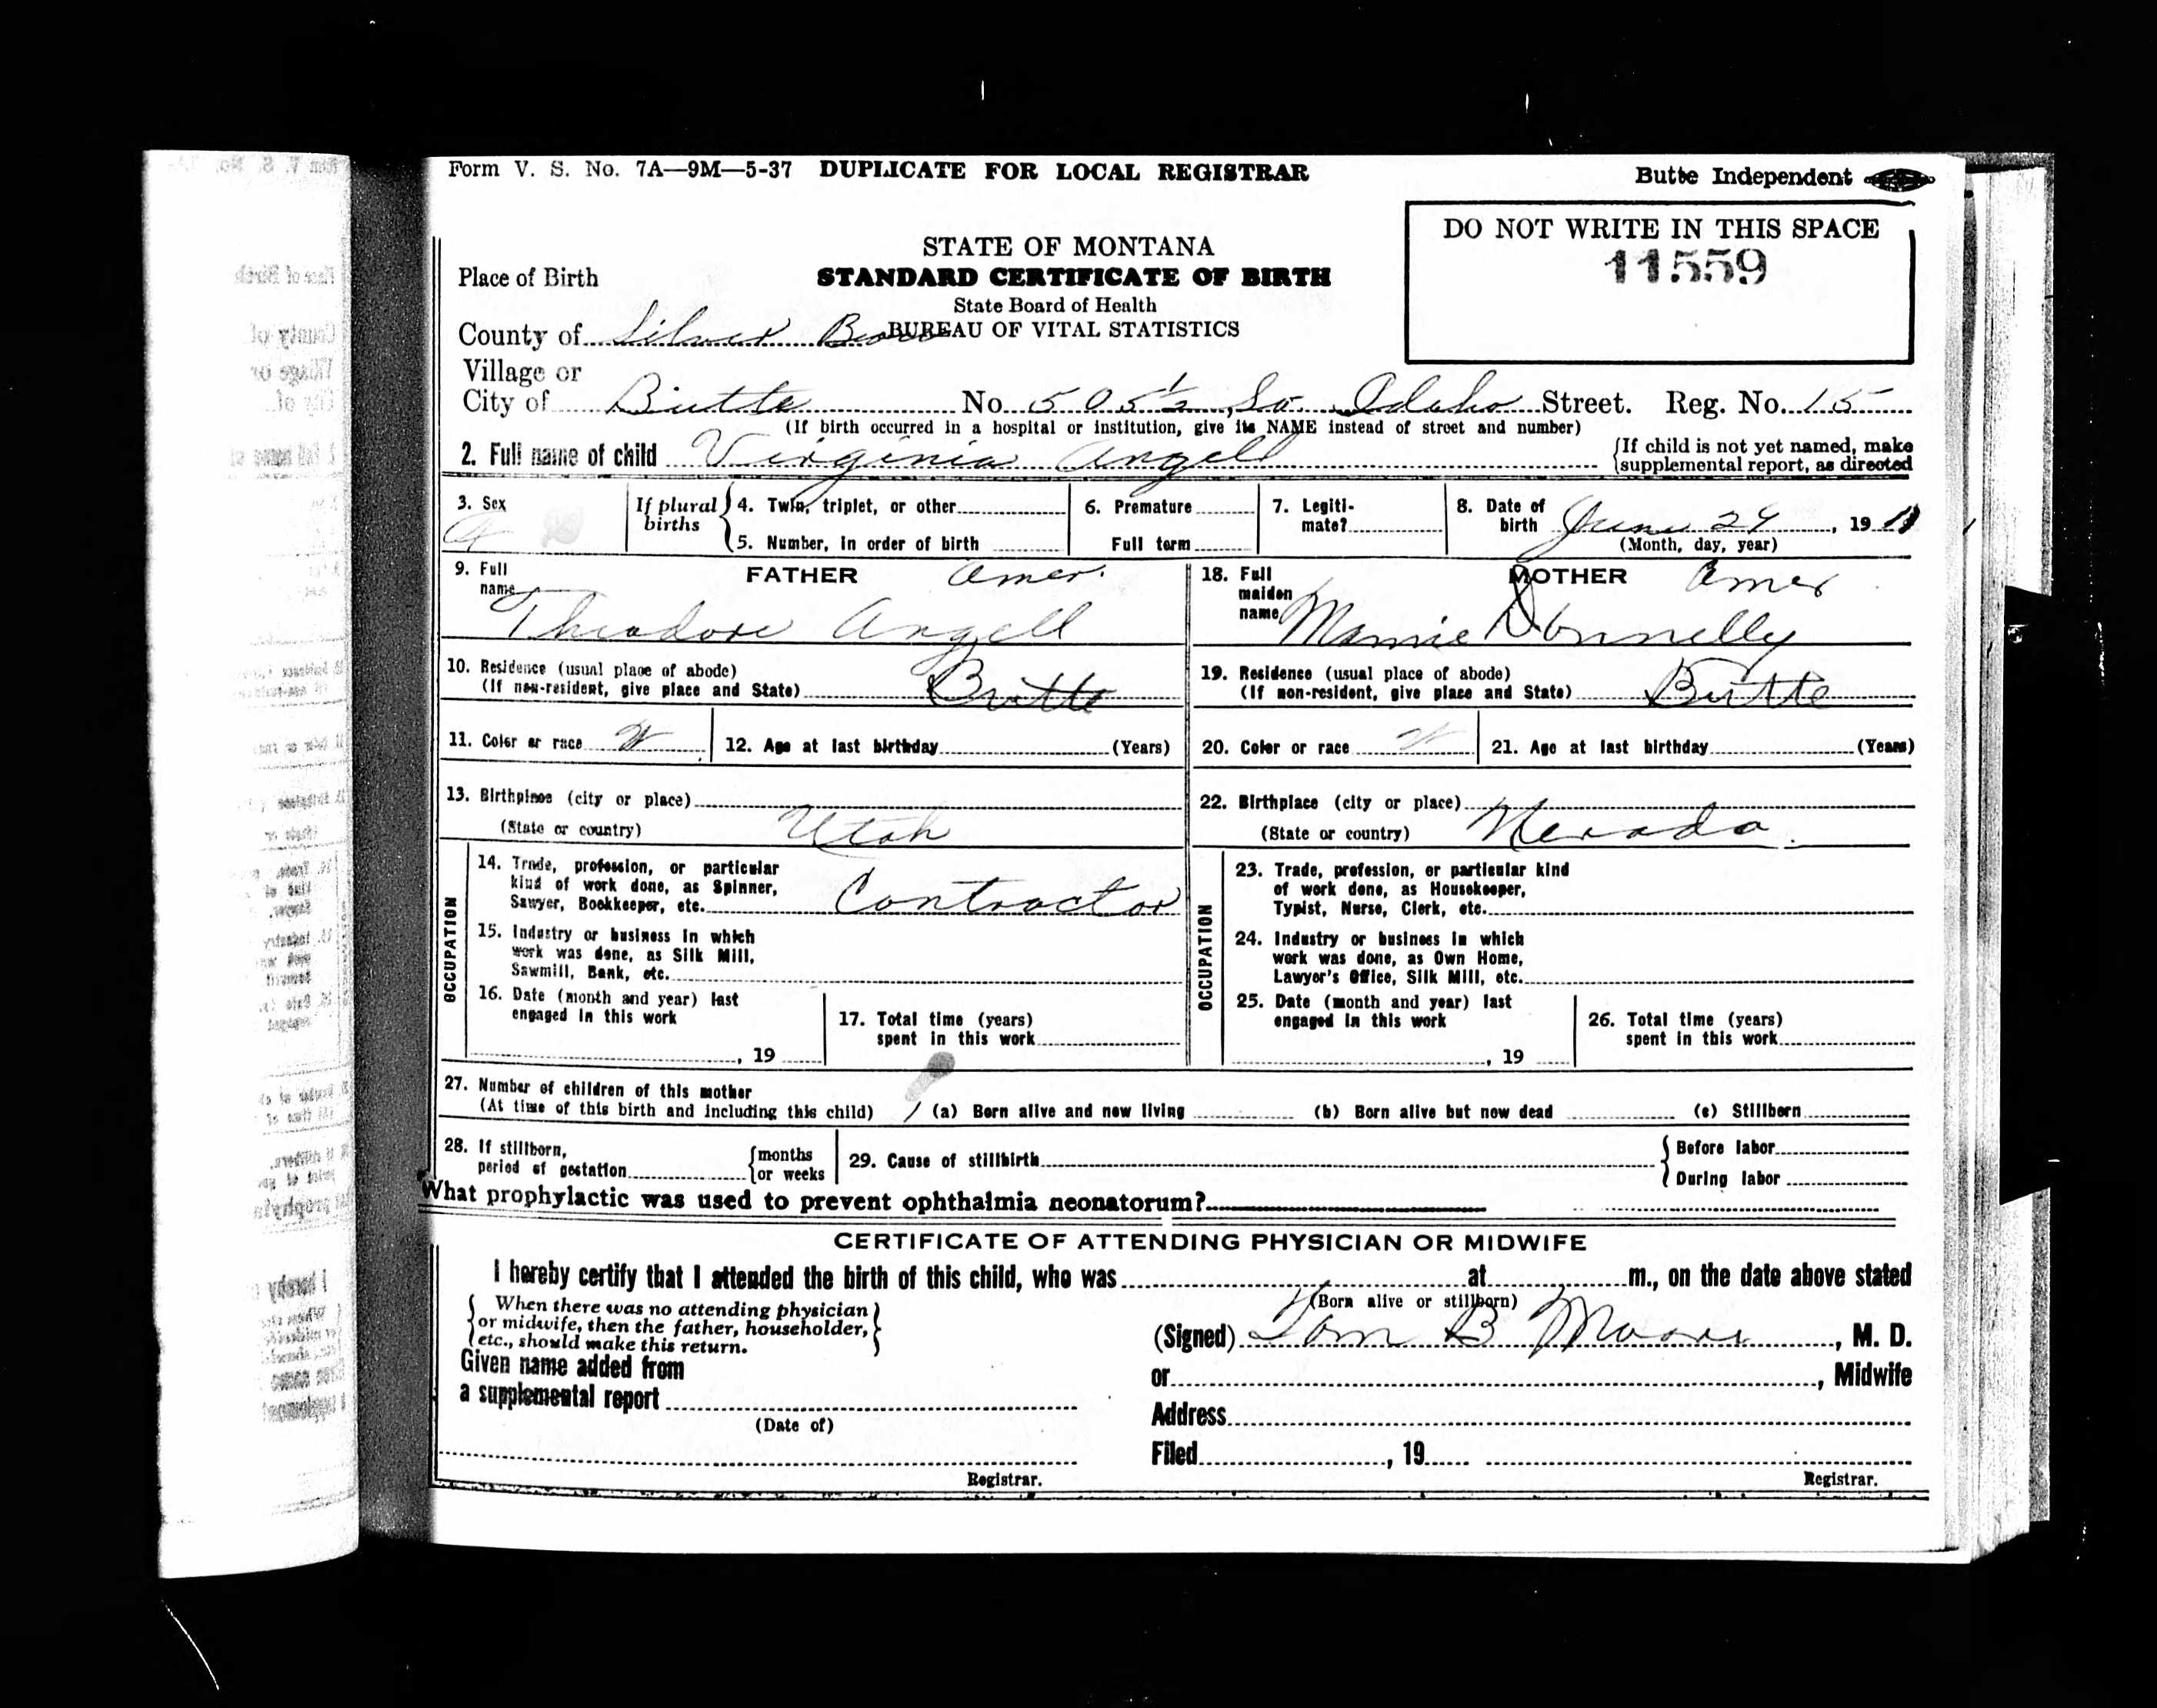 Form V. S. No. 7A—9M—5-37 DUPLICATE FOR LOCAL REGISTRAR Butte Independent
DO NOT WRITE IN THIS SPACE
11559
STATE OF MONTANA
Place of Birth STANDARD CERTIFICATE OF BIRTH
State Board of Health
County of Silver Bow BUREAU OF VITAL STATISTICS
Village or
City of Butte No 505½ So. Idaho Street. Reg. No. 15
(If birth occurred in a hospital or institution, give its NAME instead of street and number)
2. Full name of child Virginia Angell {If child is not yet named, make supplemental report, as directed
3. Sex If plural births { 4. Twin, triplet, or other 6. Premature 7. Legiti-mate? 8. Date of birth June 29, 19
5. Number, in order of birth Full term (Month, day, year)
9. Full name FATHER Amer.
Theodore Angell
18. Full maiden name MOTHER Amer
Mamie Donnelly
10. Residence (usual place of abode)
(If non-resident, give place and State) Butte
19. Residence (usual place of abode)
(If non-resident, give place and State) Butte
11. Color or race W 12. Age at last birthday (Years)
20. Color or race W 21. Age at last birthday (Years)
13. Birthplace (city or place)
(State or country) Utah
22. Birthplace (city or place)
(State or country) Nevada.
OCCUPATION
14. Trade, profession, or particular
kind of work done, as Spinner,
Sawyer, Bookkeeper, etc. Contractor
15. Industry or business in which
work was done, as Silk Mill,
Sawmill, Bank, etc.
16. Date (month and year) last
engaged in this work
, 19
17. Total time (years)
spent in this work
OCCUPATION
23. Trade, profession, or particular kind
of work done, as Housekeeper,
Typist, Nurse, Clerk, etc.
24. Industry or business in which
work was done, as Own Home,
Lawyer's Office, Silk Mill, etc.
25. Date (month and year) last
engaged in this work
, 19
26. Total time (years)
spent in this work
27. Number of children of this mother
(At time of this birth and including this child) 1 (a) Born alive and now living (b) Born alive but now dead (c) Stillborn
28. If stillborn,
period of gestation {months or weeks 29. Cause of stillbirth { Before labor
During labor
What prophylactic was used to prevent ophthalmia neonatorum?
CERTIFICATE OF ATTENDING PHYSICIAN OR MIDWIFE
I hereby certify that I attended the birth of this child, who was at m., on the date above stated
(Born alive or stillborn)
{ When there was no attending physician
or midwife, then the father, householder,
etc., should make this return. }
(Signed) Tom B Moore, M. D.
Given name added from
a supplemental report
(Date of)
Registrar.
or , Midwife
Address
Filed , 19
Registrar.